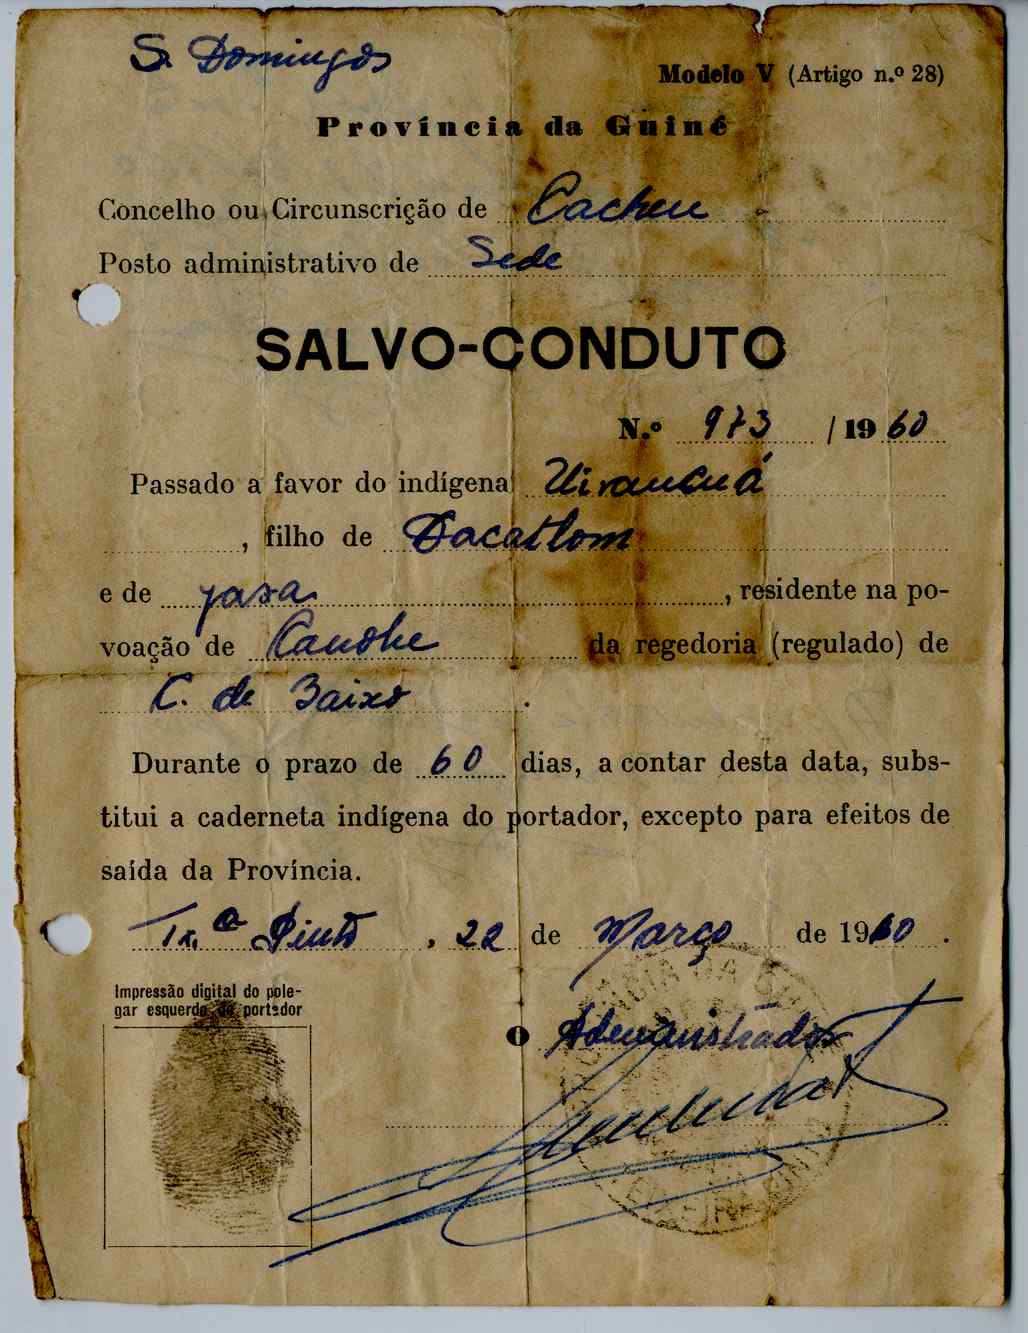 S. Domingos
Modelo V (Artigo n.º 28)
Província da Guiné
Concelho ou Circunscrição de Cacheu
Posto administrativo de Sede
SALVO-CONDUTO
N.º 973 / 1960
Passado a favor do indígena Uirancuá
, filho de Dacatlom
e de jasa , residente na po-
voação de Canohe da regedoria (regulado) de
C. de Baixo .
Durante o prazo de 60 dias, a contar desta data, subs-
titui a caderneta indígena do portador, excepto para efeitos de
saída da Província.
Tx.ª Pinto , 22 de Março de 1960.
Impressão digital do pole-
gar esquerdo do portador
O Administrador